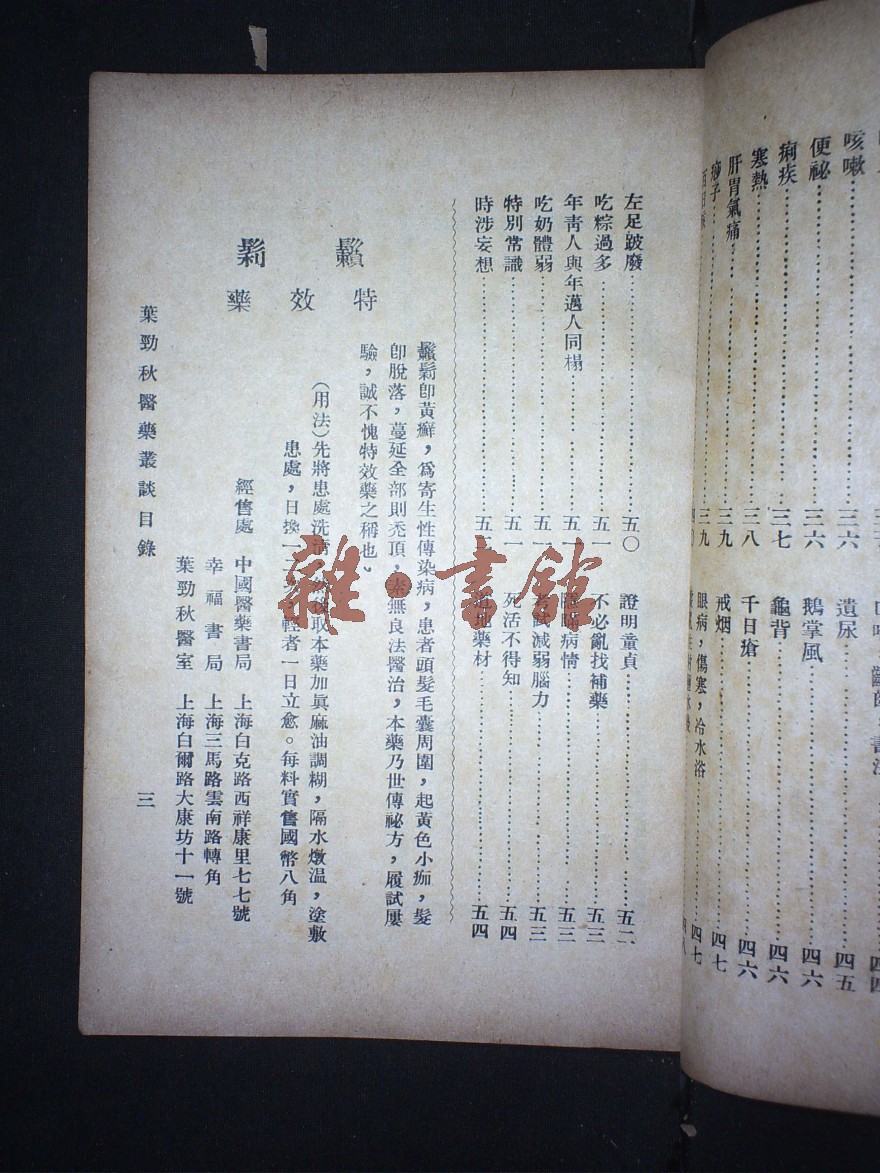 咳嗽……三六
便祕……三六
痢疾……三七
寒熱……三八
肝胃氣痛……三九
痧子……三九
遺尿……四五
鵝掌風……四六
龜背……四六
千日瘡……四六
戒烟……四七
眼病，傷寒，冷水浴……四七
左足跛廢……五〇
吃粽過多……五一
年靑人與年邁人同榻……五一
吃奶體弱……五一
特別常識……五一
時涉妄想……五一
證明童貞……五二
不必亂找補藥……五三
隱瞞病情……五三
考試減弱腦力……五三
死活不得知……五四
道地藥材……五四
鬎鬁
特效藥
鬎鬁卽黃癬，爲寄生性傳染病，患者頭髮毛囊周圍，起黃色小痂，髮
卽脫落，蔓延全部則禿頂，素無良法醫治，本藥乃世傳祕方，履試屢
驗，誠不愧特效藥之稱也、
（用法）先將患處洗淸，然後取本藥加眞麻油調糊，隔水燉温，塗敷
患處，日換一二次，輕者一日立愈。每料實售國幣八角
經售處　中國醫藥書局　上海白克路西祥康里七七號
幸福書局　上海三馬路雲南路轉角
葉勁秋醫室　上海白爾路大康坊十一號
葉勁秋醫藥叢談目錄
三
雜·書館